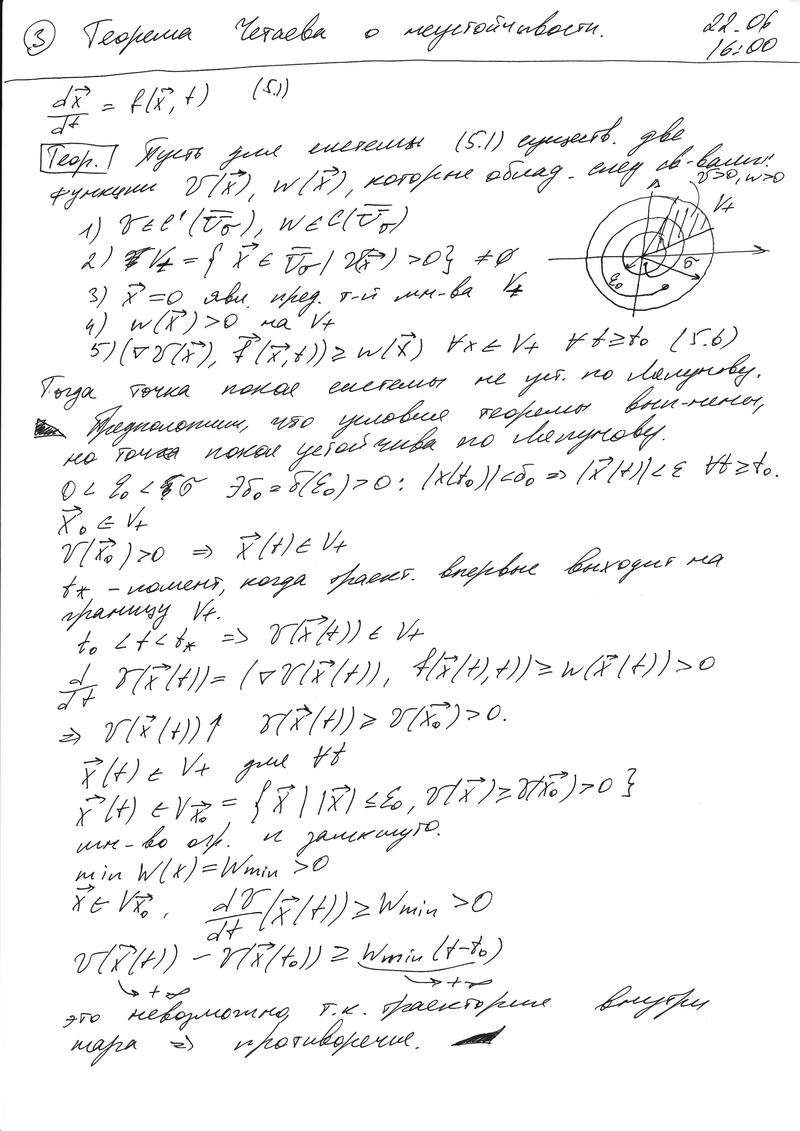 ③ Теорема Четаева о неустойчивости. 22.06
16:00
dx⃗/dt = f(x⃗, t) (5.1)
Теор. Пусть для системы (5.1) существ. две
функции v(x⃗), w(x⃗), которые облад. след св-вами:
v>0, w>0
V₊
1) v ∈ C¹(Ū_σ), w ∈ C(Ū_σ)
2) V₊ = { x⃗ ∈ Ū_σ | v(x⃗) > 0} ≠ ∅
σ
ε₀
3) x⃗ = 0 явл. пред. т-й мн-ва V₊
4) w(x⃗) > 0 на V₊
5) (∇v(x⃗), f⃗(x⃗,t)) ≥ w(x⃗) ∀x ∈ V₊ ∀t ≥ t₀ (5.6)
Тогда точка покоя системы не уст. по Ляпунову.
Предположим, что условия теоремы вып-нены,
но точка покоя устойчива по Ляпунову.
0 < ε₀ < σ ∃δ₀ = δ(ε₀) > 0 : |x(t₀)| < δ₀ ⇒ |x⃗(t)| < ε ∀t ≥ t₀.
x⃗₀ ∈ V₊
v(x⃗₀) > 0 ⇒ x⃗(t) ∈ V₊
t* – момент, когда траект. впервые выходит на
границу V₊.
t₀ < t < t* ⇒ v(x⃗(t)) ∈ V₊
d/dt v(x⃗(t)) = (∇v(x⃗(t)), f(x⃗(t),t)) ≥ w(x⃗(t)) > 0
⇒ v(x⃗(t)) ↑ v(x⃗(t)) ≥ v(x⃗₀) > 0.
x⃗(t) ∈ V₊ для ∀t
x⃗(t) ∈ V_x⃗₀ = { x⃗ | |x⃗| ≤ ε₀, v(x⃗) ≥ v(x⃗₀) > 0 }
мн-во огр. и замкнуто.
min w(x) = w_min > 0
x⃗ ∈ V_x⃗₀, dv/dt (x⃗(t)) ≥ w_min > 0
v(x⃗(t)) − v(x⃗(t₀)) ≥ w_min (t−t₀)
↳ +∞ ↳ +∞
это невозможно, т.к. траектория внутри
шара ⇒ противоречие.